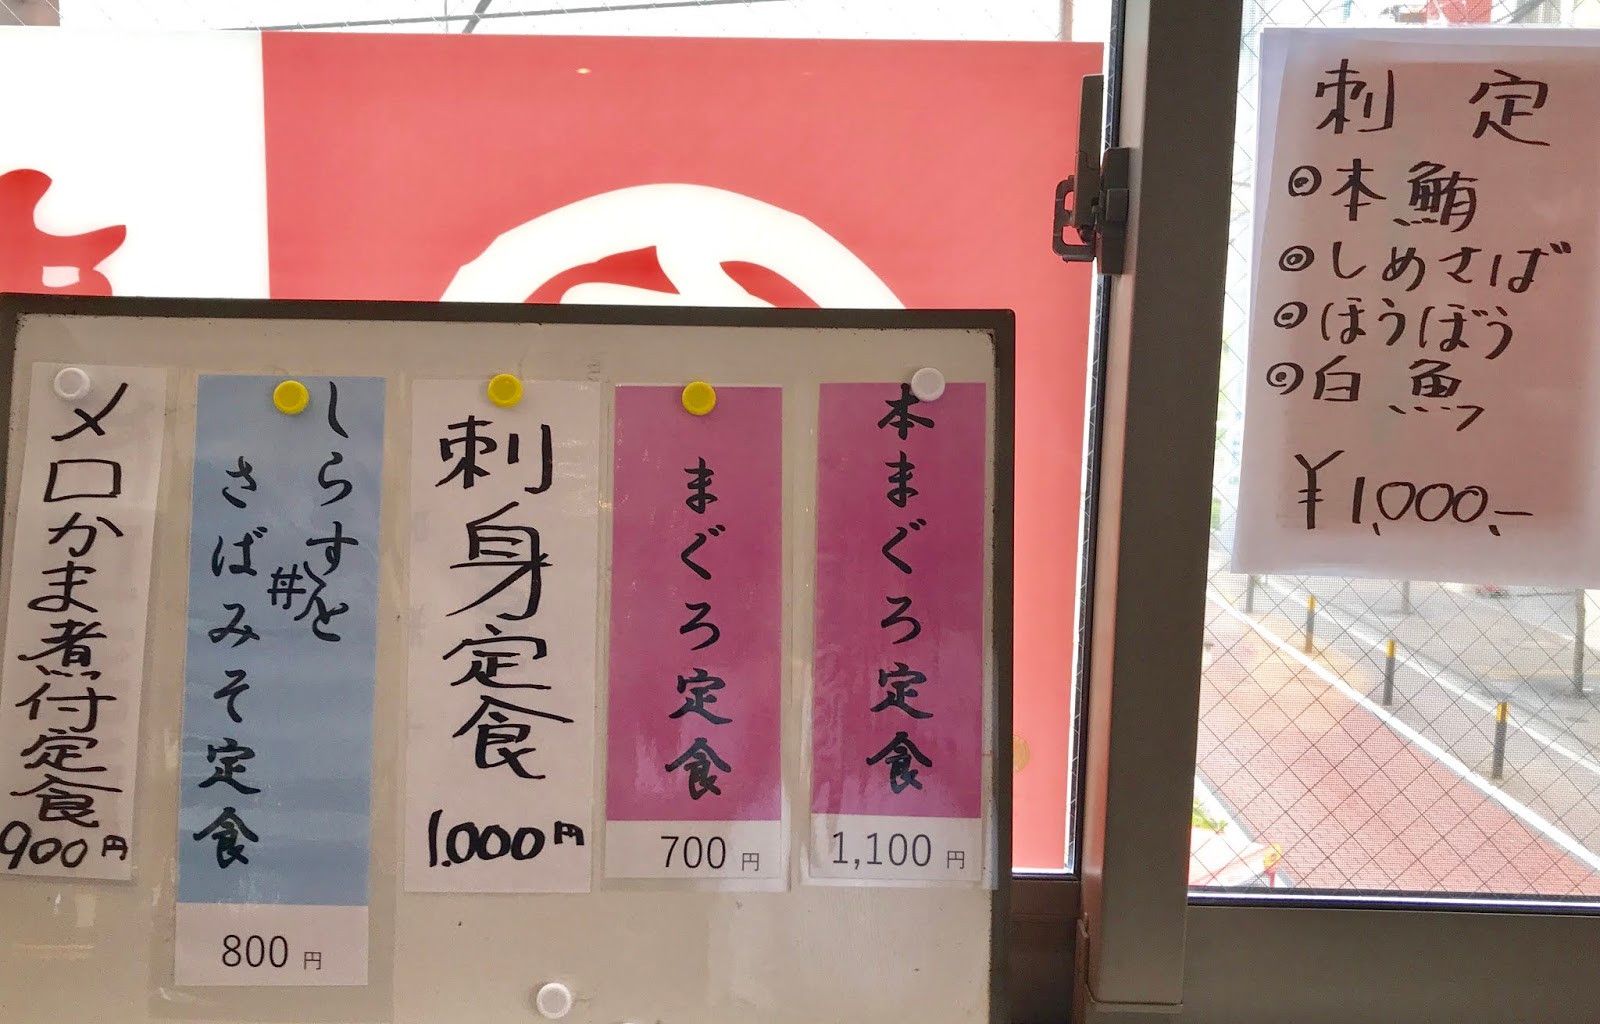 本まぐろ定食
1,100円
まぐろ定食
700円
刺身定食
1.000円
しらす丼と
さばみそ定食
800円
メロかま煮付定食
900円
刺定
◎本鮪
◎しめさば
◎ほうぼう
◎白魚
¥1,000.-